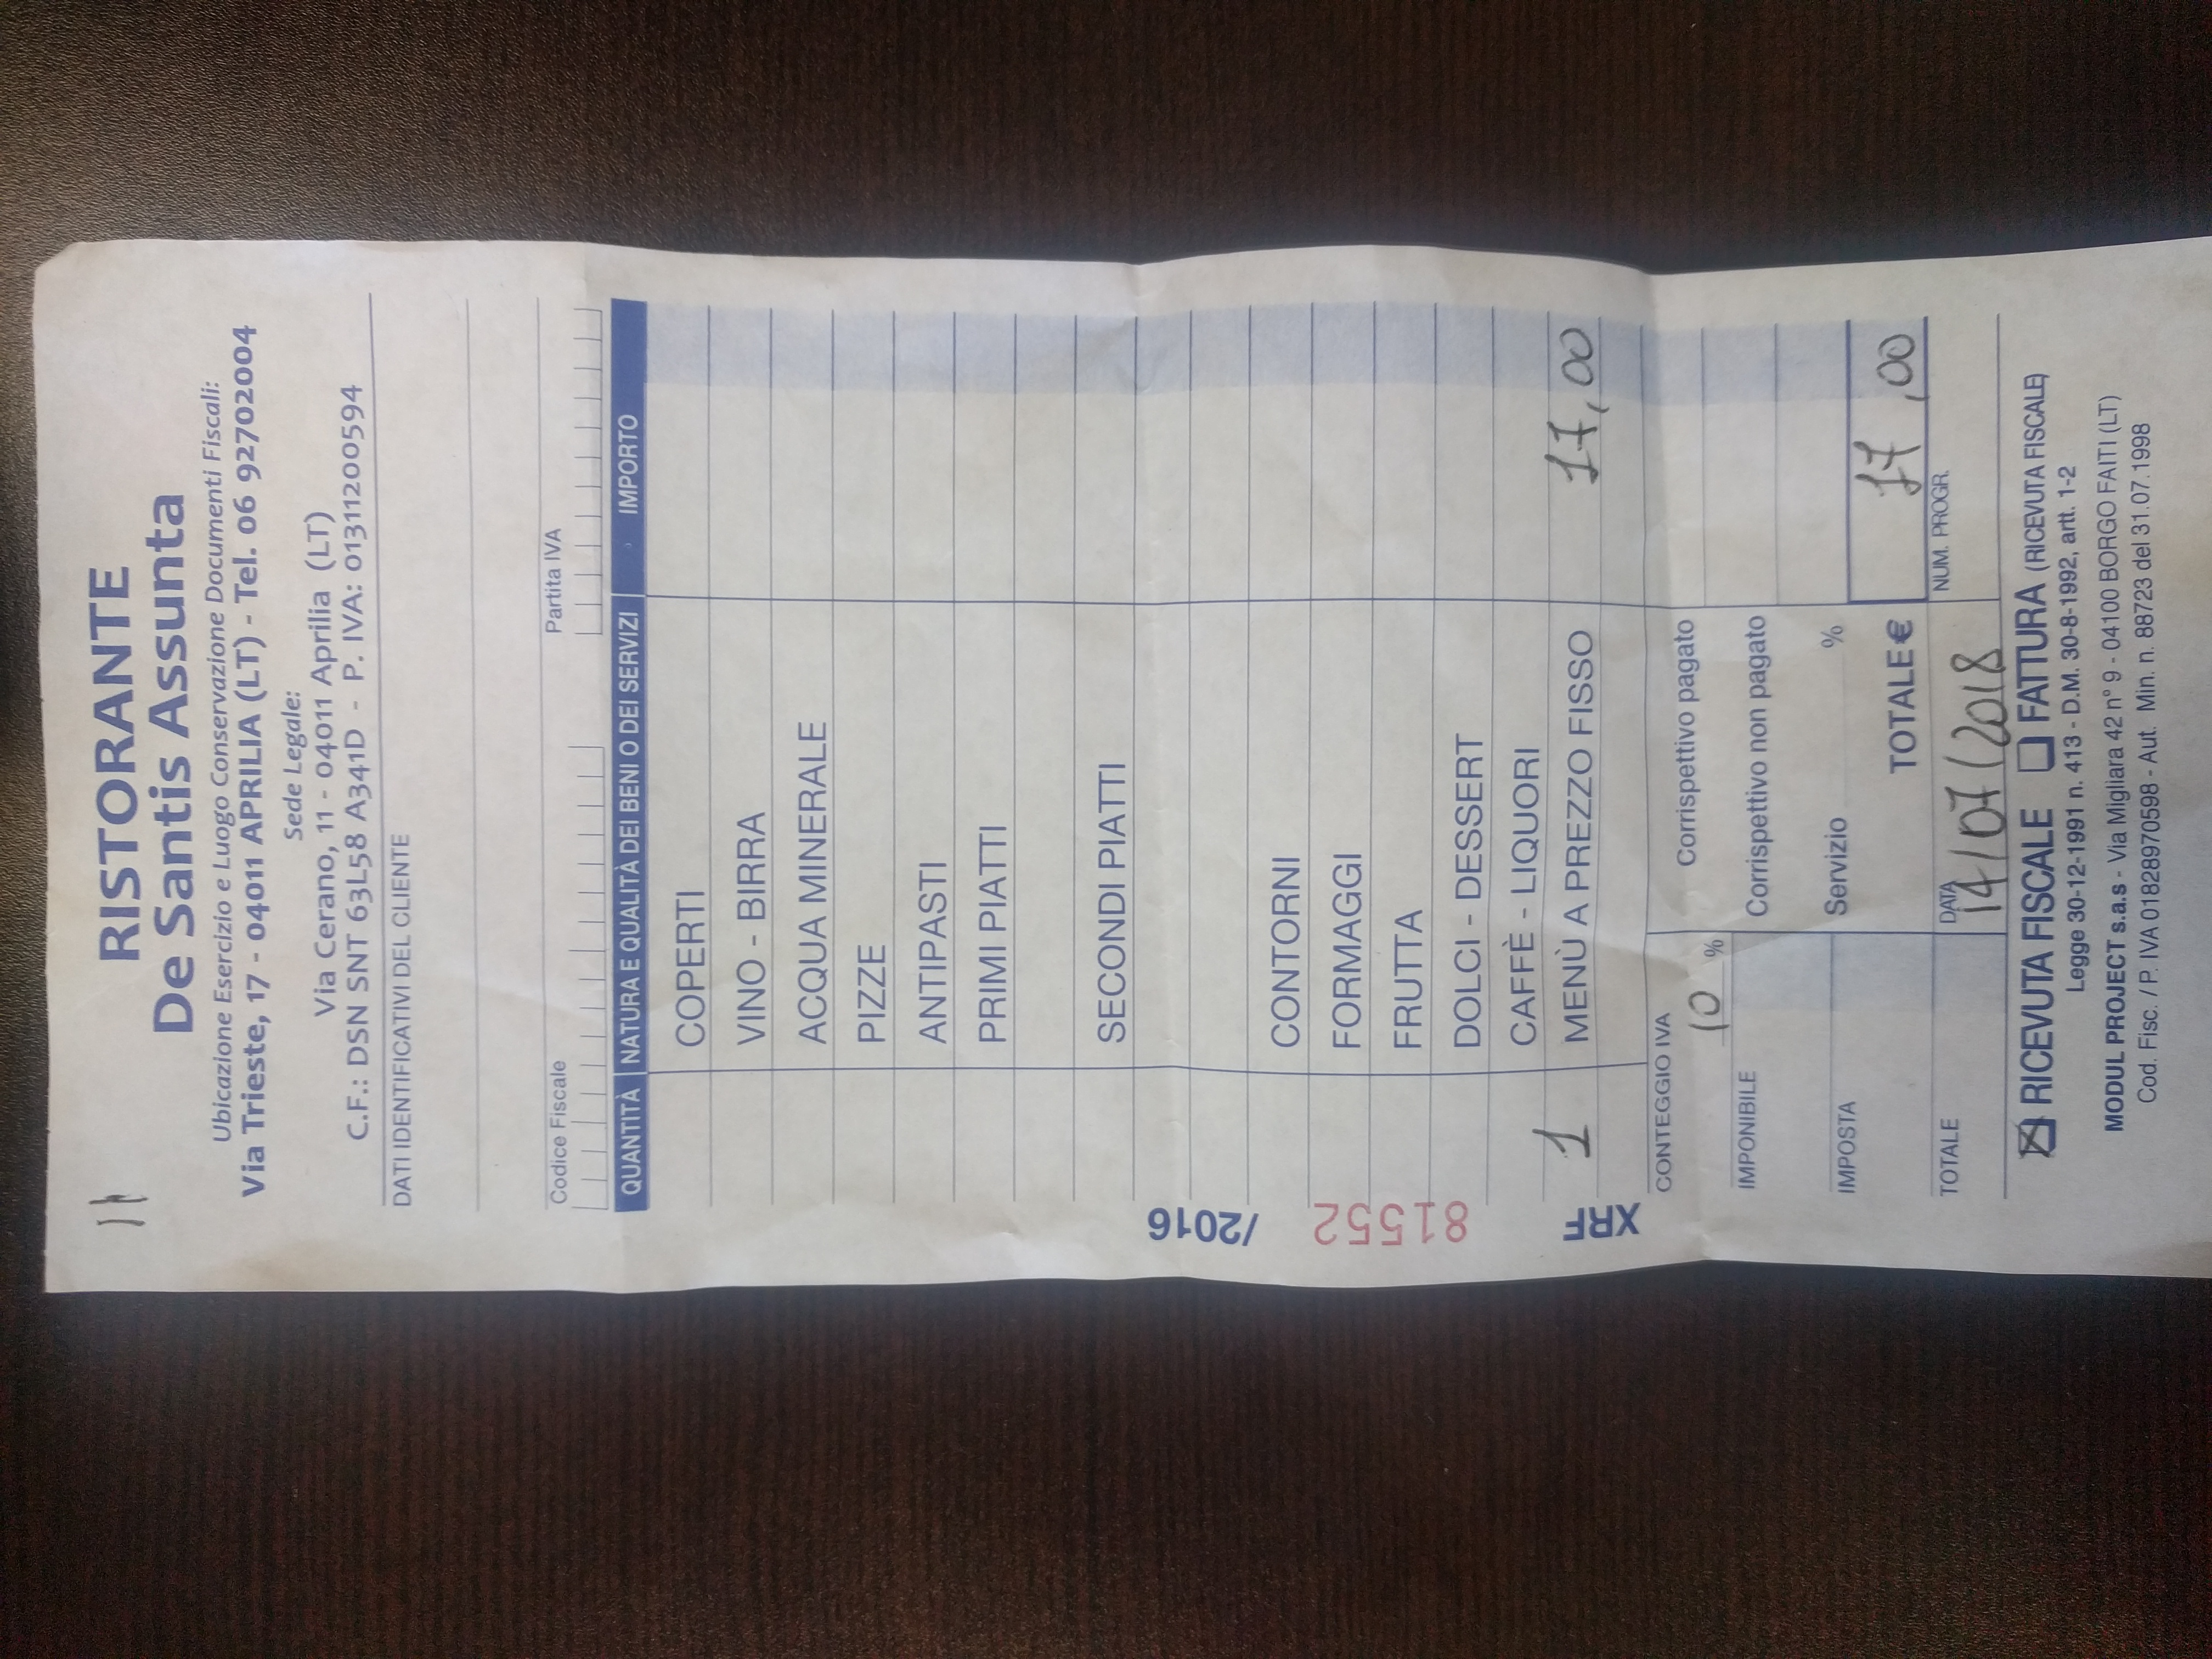 RISTORANTE
De Santis Assunta
Ubicazione Esercizio e Luogo Conservazione Documenti Fiscali:
Via Trieste, 17 - 04011 APRILIA (LT) - Tel. 06 92702004
Sede Legale:
Via Cerano, 11 - 04011 Aprilia (LT)
C.F.: DSN SNT 63L58 A341D - P. IVA: 01311200594
DATI IDENTIFICATIVI DEL CLIENTE
Codice Fiscale Partita IVA
QUANTITÀ NATURA E QUALITÀ DEI BENI O DEI SERVIZI IMPORTO
COPERTI
VINO - BIRRA
ACQUA MINERALE
PIZZE
ANTIPASTI
PRIMI PIATTI
SECONDI PIATTI
CONTORNI
FORMAGGI
FRUTTA
DOLCI - DESSERT
CAFFÈ - LIQUORI
1 MENÙ A PREZZO FISSO 17,00
XRF 81552 /2016
CONTEGGIO IVA
10 %
Corrispettivo pagato
IMPONIBILE
Corrispettivo non pagato
IMPOSTA
Servizio %
TOTALE € 17,00
TOTALE
DATA 14/07/2018
NUM. PROGR.
RICEVUTA FISCALE FATTURA (RICEVUTA FISCALE)
Legge 30-12-1991 n. 413 - D.M. 30-8-1992, artt. 1-2
MODUL PROJECT s.a.s - Via Migliara 42 n° 9 - 04100 BORGO FAITI (LT)
Cod. Fisc. / P. IVA 01828970598 - Aut. Min. n. 88723 del 31.07.1998